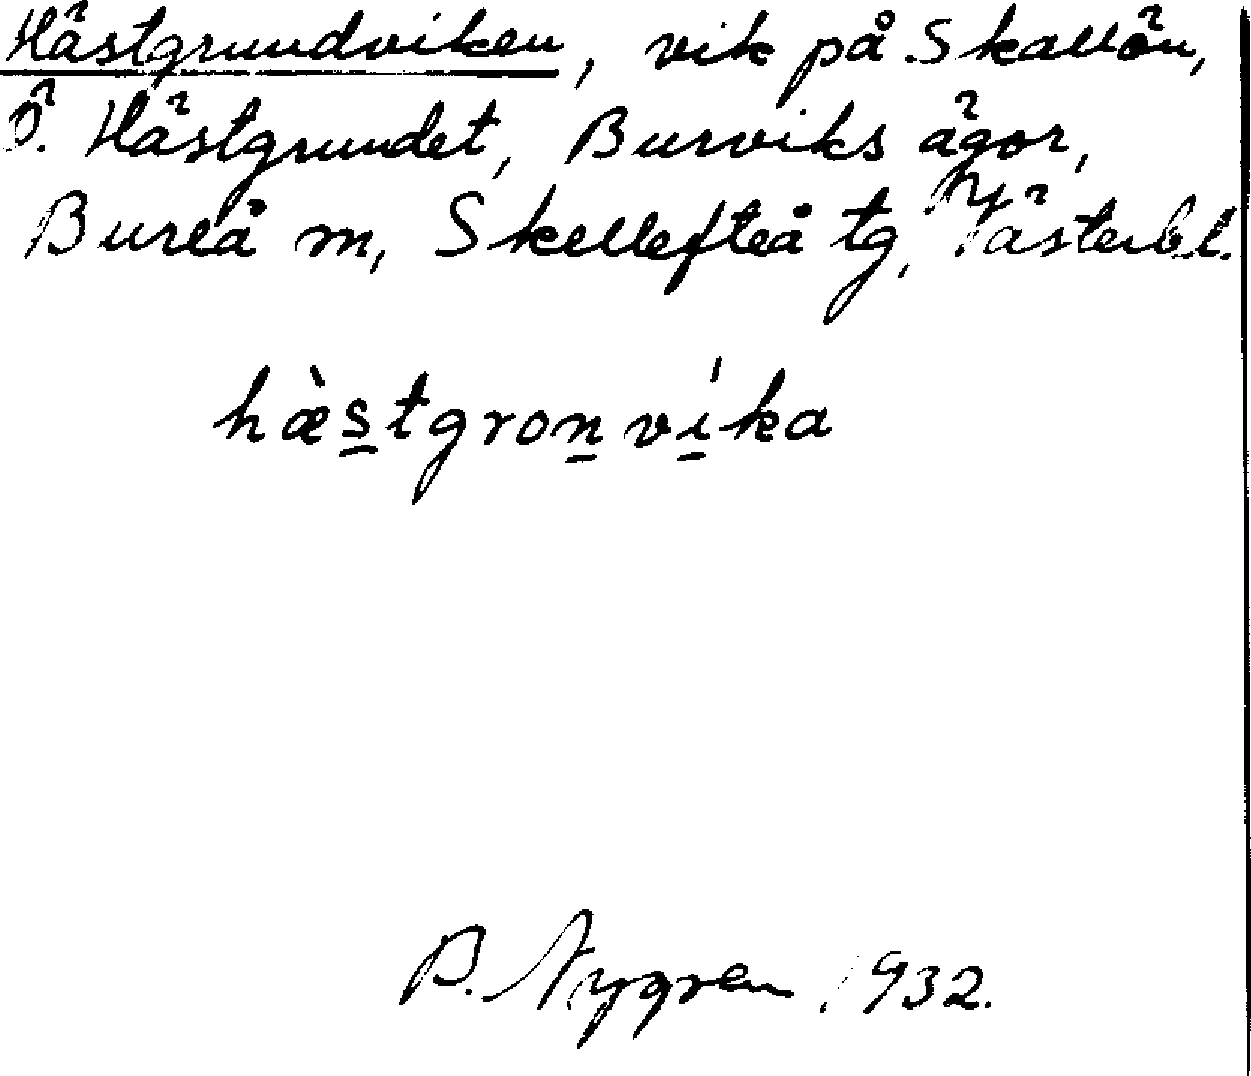 Hästgrundviken, vik på Skallön,
Ö. Hästgrundet, Burviks ägor,
Bureå m, Skellefteå tg, Västerb.l.
hæ̀s̲tgron̲ví̲ka
B. Nygren 1932.